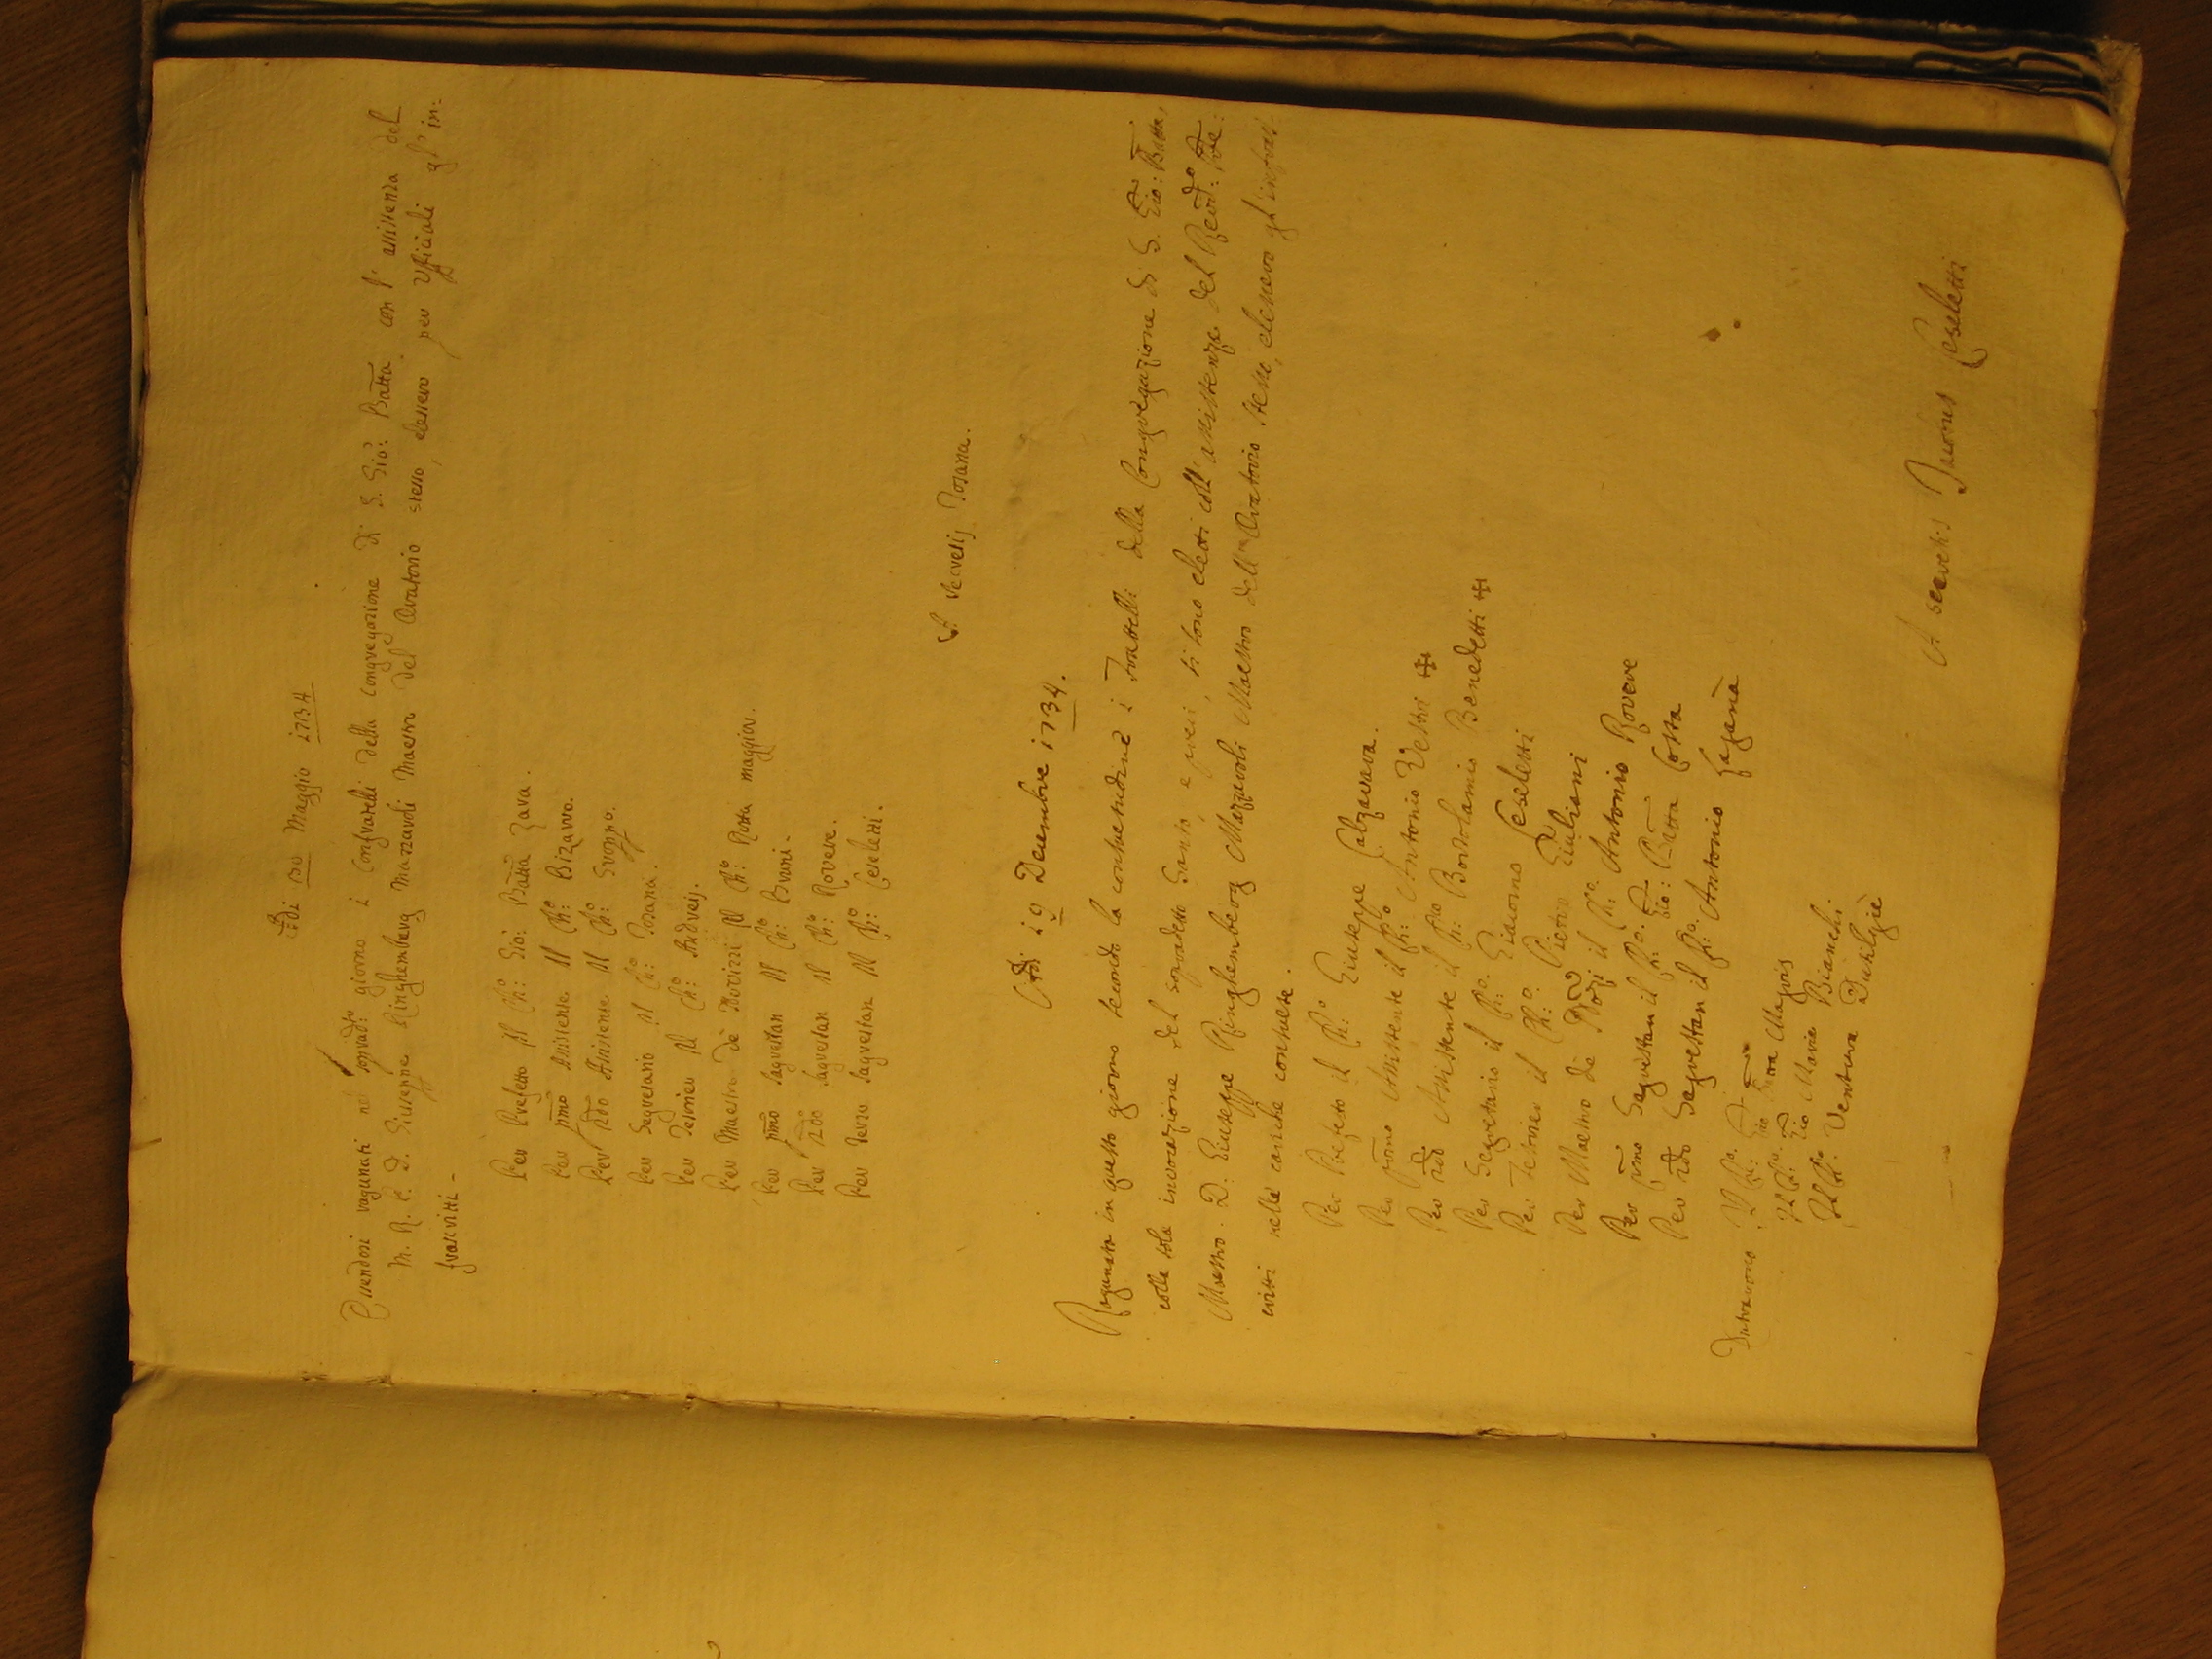 Adi 30 Maggio 1734
Essendosi ragunati nel sopradº: giorno i Confratelli della Congregazione di S. Giò: Batta con l'assistenza del
M. R. P. D. Giuseppe Ringhemberg Mazzaroli Maestro del Oratorio stesso, elessero per Ufficiali gl'in-
frascritti -
Per Prefetto Il Ch: Giò: Batta Zava.
Per pmo Assistente Il Chº: Bizarro.
Per 2do Assistente Il Chº: Groppo.
Per Segretario Il Chº: Tosana.
Per Tesorier Il Chº: Andreis.
Per Maestro de Novizzi Il Chº: Rotta maggior.
Per pmo Sagrestan Il Chº: Bruni.
Per 2do Sagrestan Il Chº: Rovere.
Per terzo Sagrestan Il Chº: Ceseletti.
A secretis Tosana.
Adi 19 Decembre 1734.
Ragunato in questo giorno secondo la consuetudine i Frattelli della Congregazione di S. Gio: Batta,
colla sola invocazione del sopradetto Santo, e preci, si sono eletti coll'assistenza del Revdº: Pre:
Maestro D. Giuseppe Ringhemberg Mazzaroli Maestro dell'Oratorio stesso, elessero gl'infras-
critti nelle cariche consuete.
Per Prefeto il Chº: Giuseppe Calzavara.
Per primo Assistente il Chº: Antonio Vestri ✠
Per 2do Assistente il Chº: Bortolamio Benedetti ✠
Per Segretario il Chº: Giacomo Ceseletti
Per Tesorier il Chº: Pietro Giuliani
Per Maestro de Novizi il Chº: Antonio Rovere
Per Primo Sagrestan il Chº: Gio: Batta Costa
Per 2do Sagrestan il Chº: Antonio Fagana
Intrarono Il Chº: Gio
Il Chº: Gio Maria Bianchi
Il Chº: Ventura
A secretis Jacobus Ceseletti